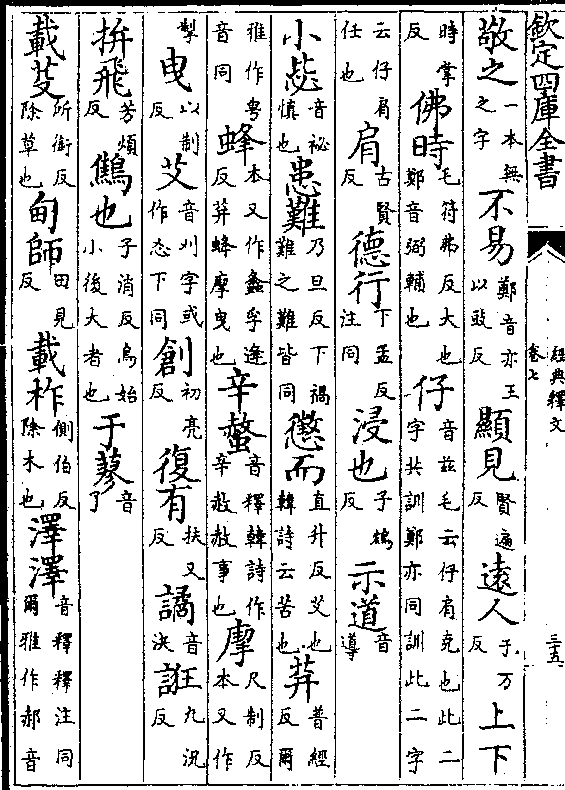 欽定四庫全書
經典釋文
卷七
三五
敬之一本無之字不易鄭音亦王以豉反顯見賢遍反遠人于万反上下
時掌反佛時毛符弗反大也鄭音弼輔也仔音兹毛云仔肩克也此二字共訓鄭亦同訓此二字
云仔肩任也肩古賢反德行下孟反注同浸也子鴆反示道音導
小毖音祕慎也患難乃旦反下禍難之難皆同懲而直升反艾也韓詩云苦也荓普經反爾
雅作甹音同蜂本又作蠭孚逢反荓蜂摩曳也辛螫音釋韓詩作辛赦赦事也摩尺制反本又作
掣曳以制反艾音刈字或作㣻下同創初亮反復有扶又反譎音决誑九況反
拚飛芳煩反鷦也子消反鳥始小後大者也于蓼音了
載芟所銜反除草也甸師田見反載柞側伯反除木也澤澤音釋釋注同爾雅作郝音